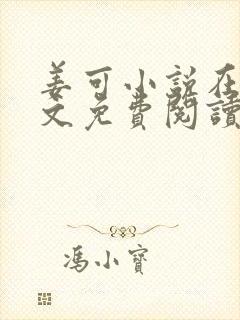 姜可小説在
文免費閱讀
馮小寶